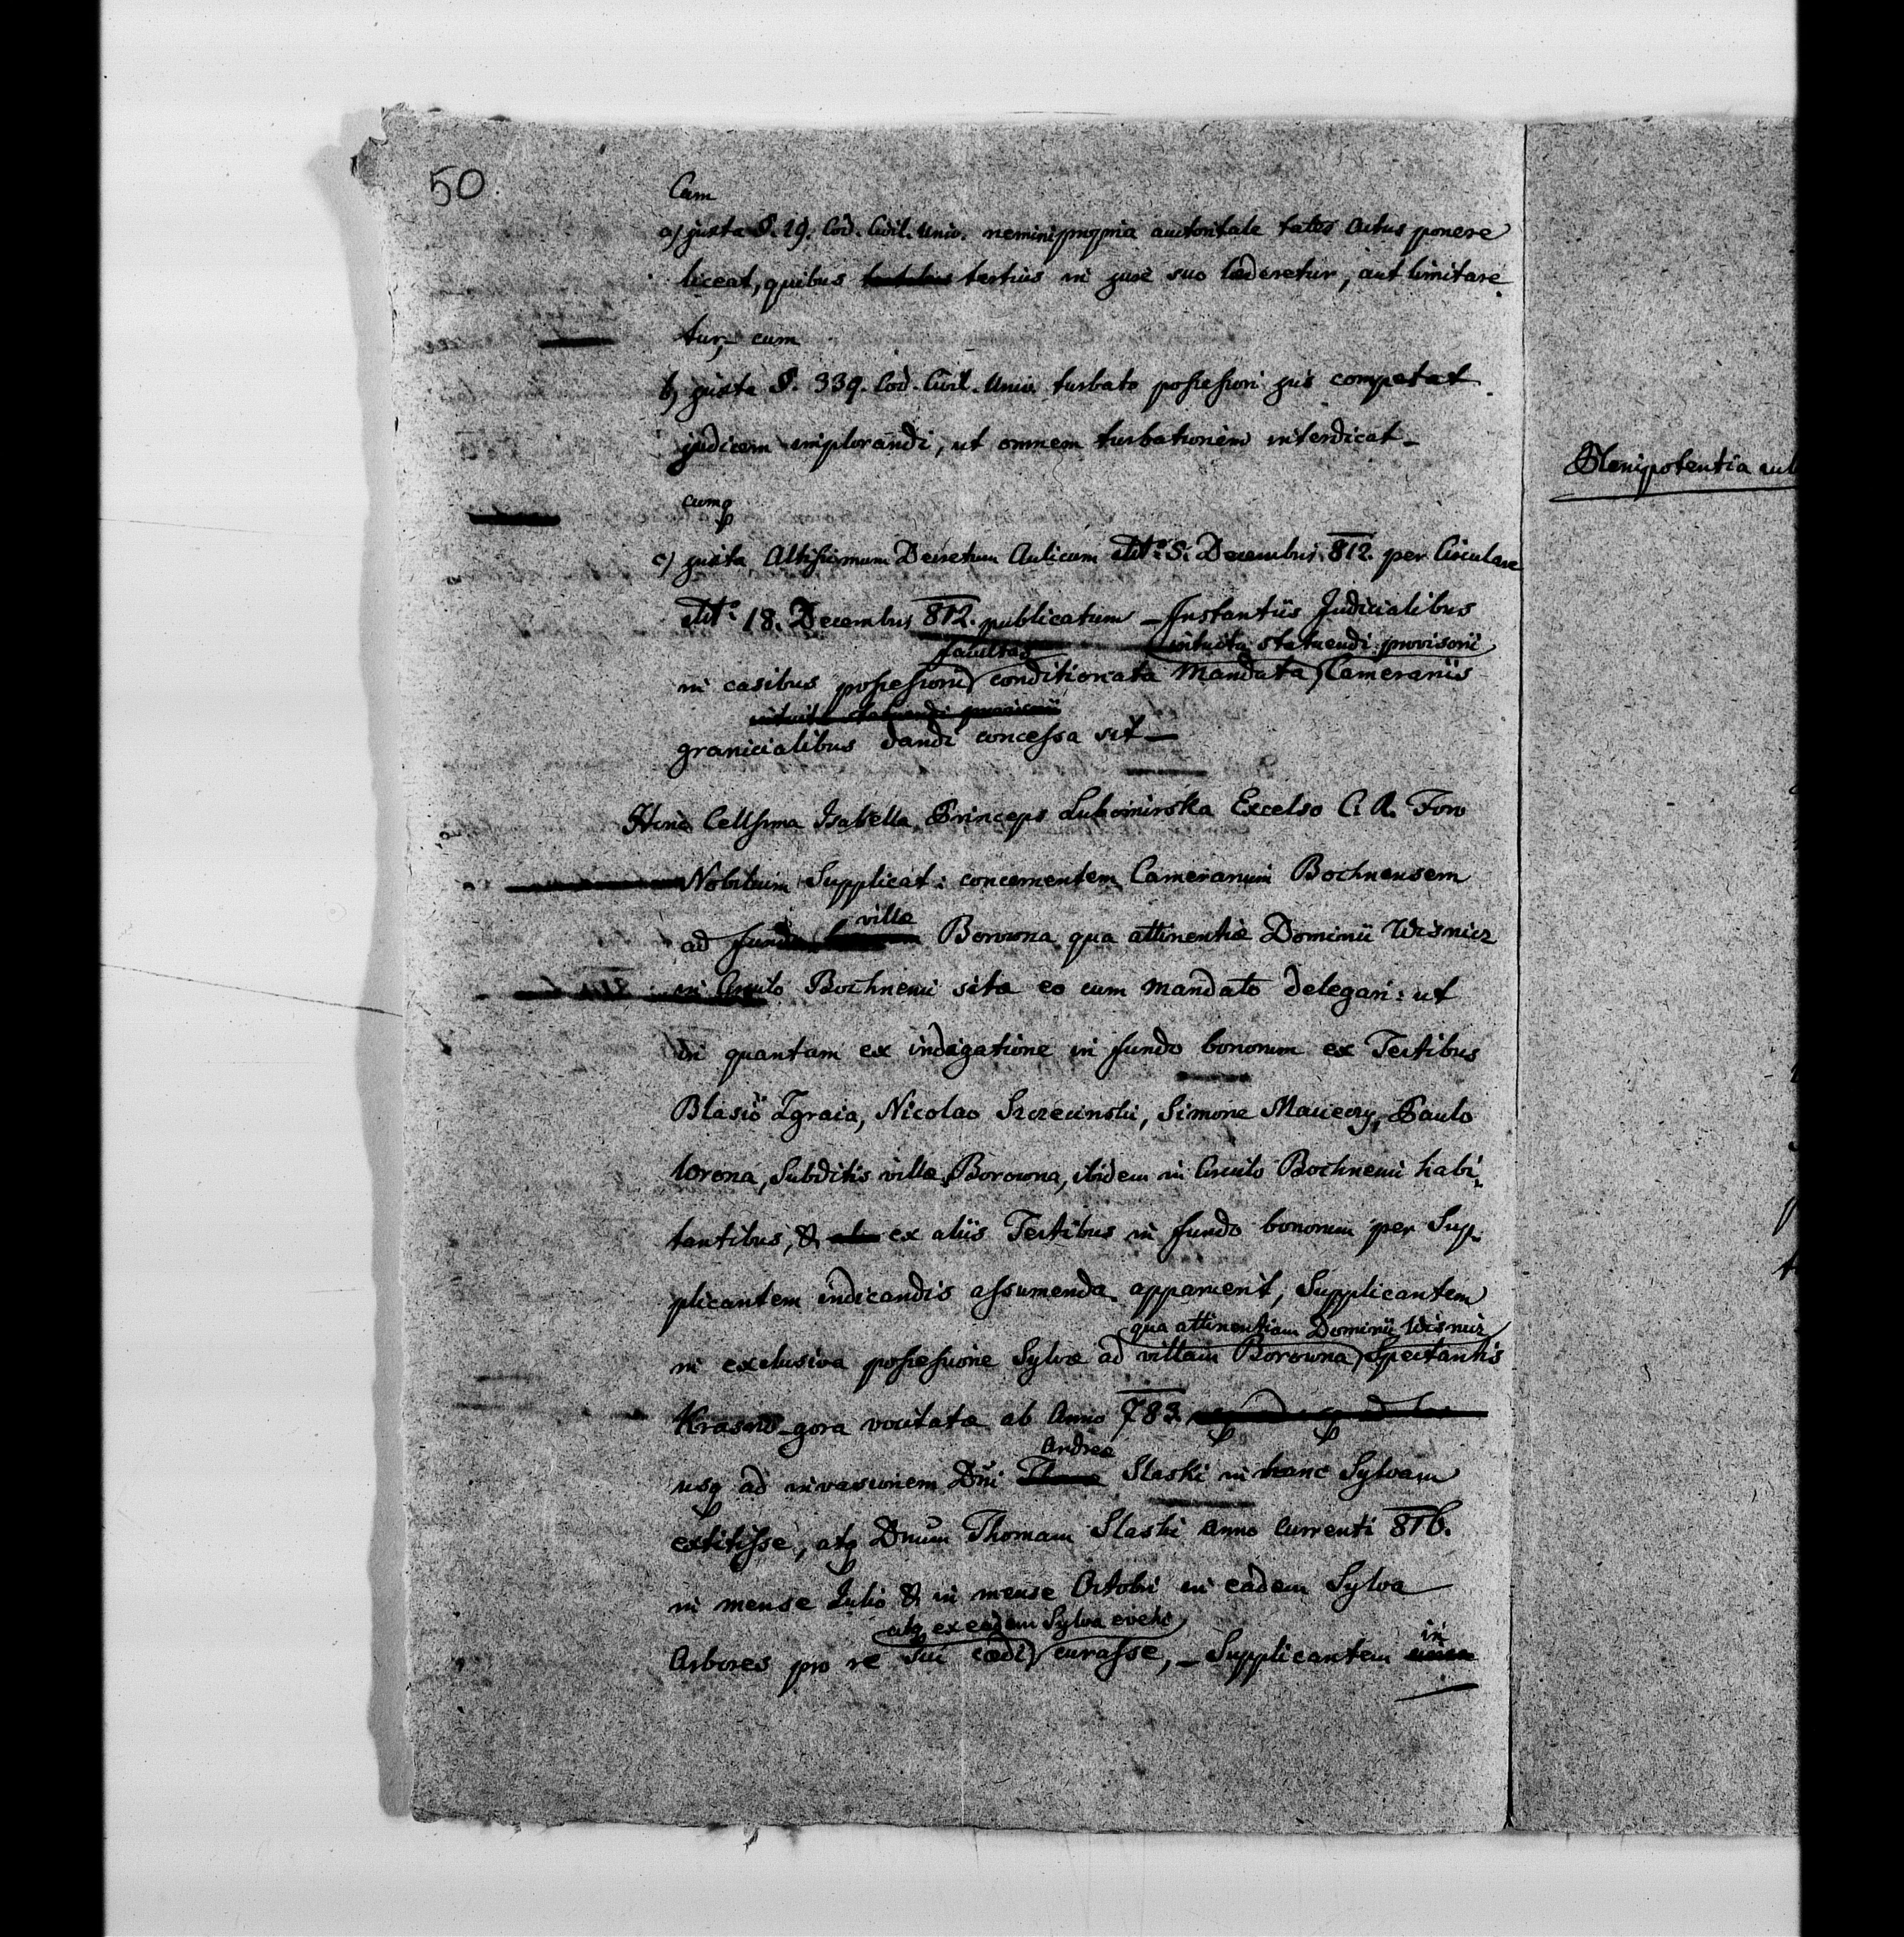 50
Cum
a) juxta §. 19. Cod. Civil. Univ. nemini propria auctoritate tales actus ponere
liceat, quibus tertius in jure suo læderetur, aut limitare-
tur, cum
b) juxta §. 339. Cod. Civil. Univ. turbato possessori jus competat
judicem implorandi, ut omnem turbationem interdicat –
cumq
c) juxta Altissimum Decretum Aulicum ddto 5. Decembris 812. per Circulare
ddto 18. Decembris 812. publicatum – Instantiis Judicialibus
facultas intuitu statuendi provisorii
in casibus possessorii conditionata Mandata Camerariis
intuitu statuendi provisorii
granicialibus dandi concessa sit –
Hinc Celssima Isabella Princeps Lubomirska Excelso C. R. Foro
Nobilium Supplicat: concernentem Camerarium Bochnensem
villæ
ad fundum Borowna qua attinentiæ Dominii Wisnicz
in Circulo Bochnensi sitæ eo cum mandato delegari: ut
in quantam ex indagatione in fundo bonorum ex Testibus
Blasio Zgraia, Nicolao Szczecinski, Simone Macieczy, Paulo
Wrona, Subditis villæ Borowna, ibidem in Circulo Bochnensi habi-
tantibus, & ex aliis Testibus in fundo bonorum per Sup-
plicantem indicandis assumenda apparuerit, Supplicantem
qua attinentiam Dominii Wisnicz
in exclusiva possessione Sylvæ ad villam Borowna Spectantis
Krasno-gora vocitatæ ab Anno 783.
Andreæ
usq ad invasionem Dni Slaski in hanc Sylvam
extitisse, atq Dnum Thomam Slaski Anno Currenti 816.
in mense Julio & in mense Octobri in eadem Sylva
atq ex eadem Sylva evehi
in
Arbores pro re sui cædi curasse, – Supplicantem
Plenipotentia